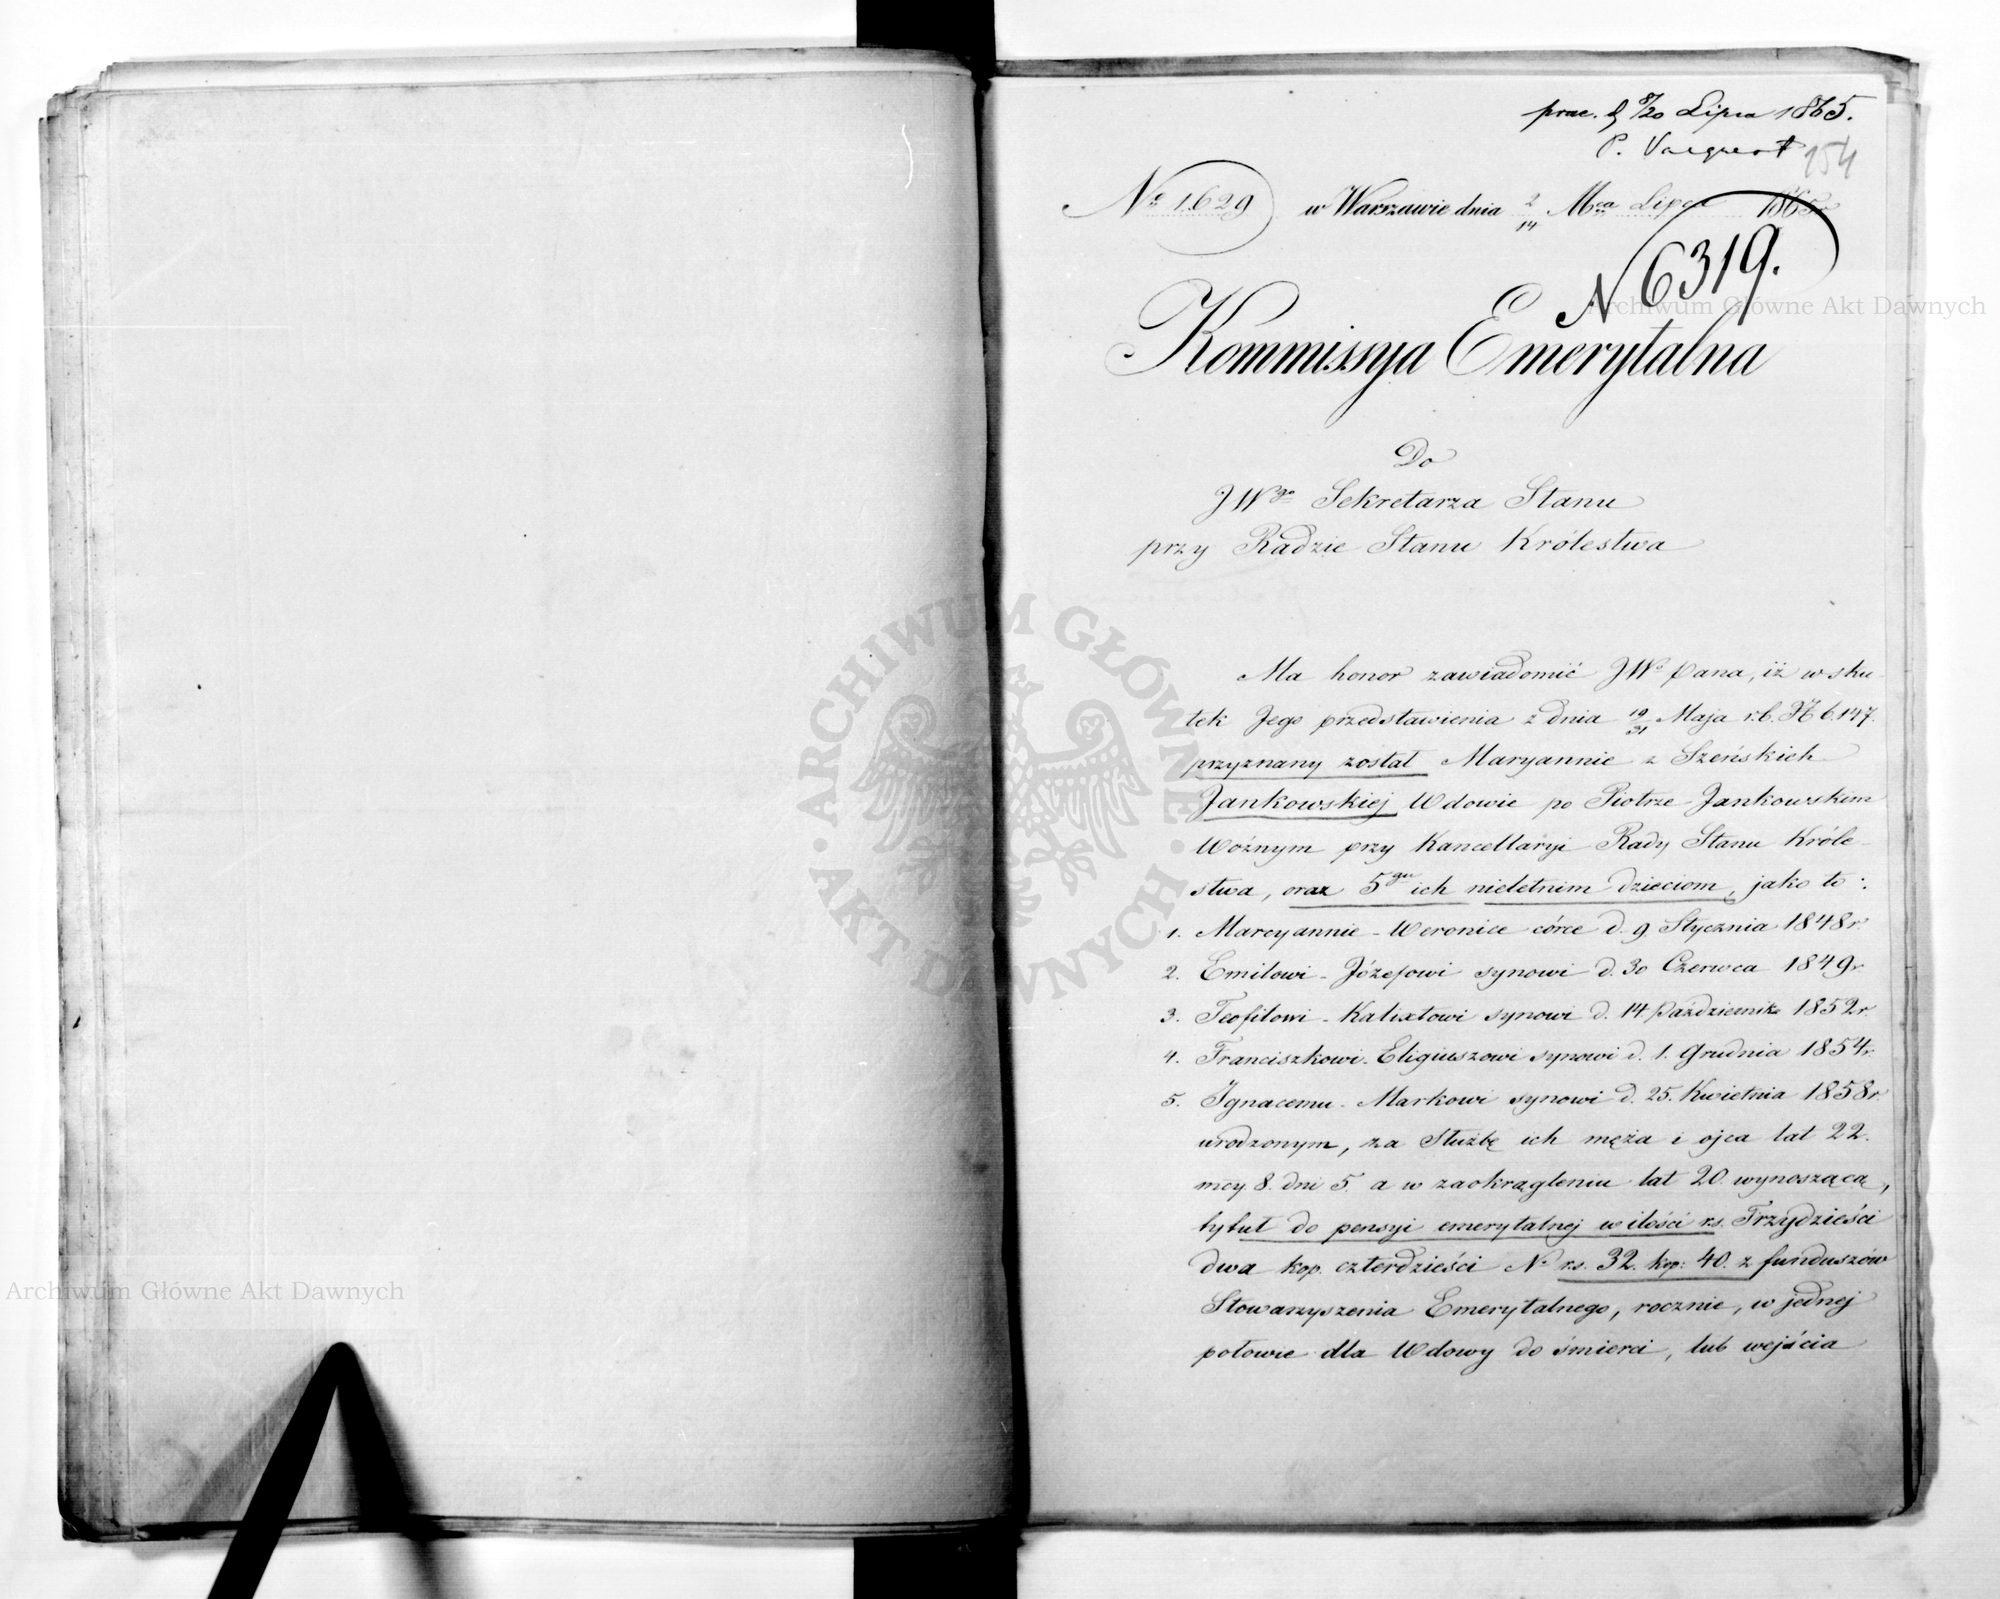 prac. d 8/20 Lipca 1865.
P.
154
No 1629 w Warszawie dnia 2/14 Mca Lipca 1865r
N 6319.
Kommissya Emerytalna
Do
JWgo Sekretarza Stanu
przy Radzie Stanu Królestwa
Ma honor zawiadomić JWo Pana, iż w sku-
tek Jego przedstawienia z dnia 19/31 Maja r.b. N 6.147.
przyznany został Maryannie z Szeńskich
Jankowskiej Wdowie po Piotrze Jankowskim
Woźnym przy Kancellaryi Rady Stanu Króle-
stwa, oraz 5gu ich nieletnim dzieciom, jako to:
1. Marcyannie-Weronice córce d. 9. Stycznia 1848r.
2. Emilowi-Józefowi synowi d. 30 Czerwca 1849r.
3. Teofilowi-Kalixtowi synowi d. 14 Październik 1852r.
4. Franciszkowi-Eligiuszowi synowi d. 1. Grudnia 1854r.
5. Ignacemu-Markowi synowi d. 25. Kwietnia 1858r.
urodzonym, za służbę ich męża i ojca lat 22.
mcy 8. dni 5. a w zaokrągleniu lat 20. wynoszącą,
tytuł do pensyi emerytalnej w ilości rs. Trzydzieści
dwa kop. czterdzieści No rs. 32. kop: 40. z funduszów
Stowarzyszenia Emerytalnego, rocznie, w jednej
połowie dla Wdowy do śmierci, lub wejścia
Archiwum Główne Akt Dawnych
Archiwum Główne Akt Dawnych
ARCHIWUM GŁÓWNE · AKT DAWNYCH ·